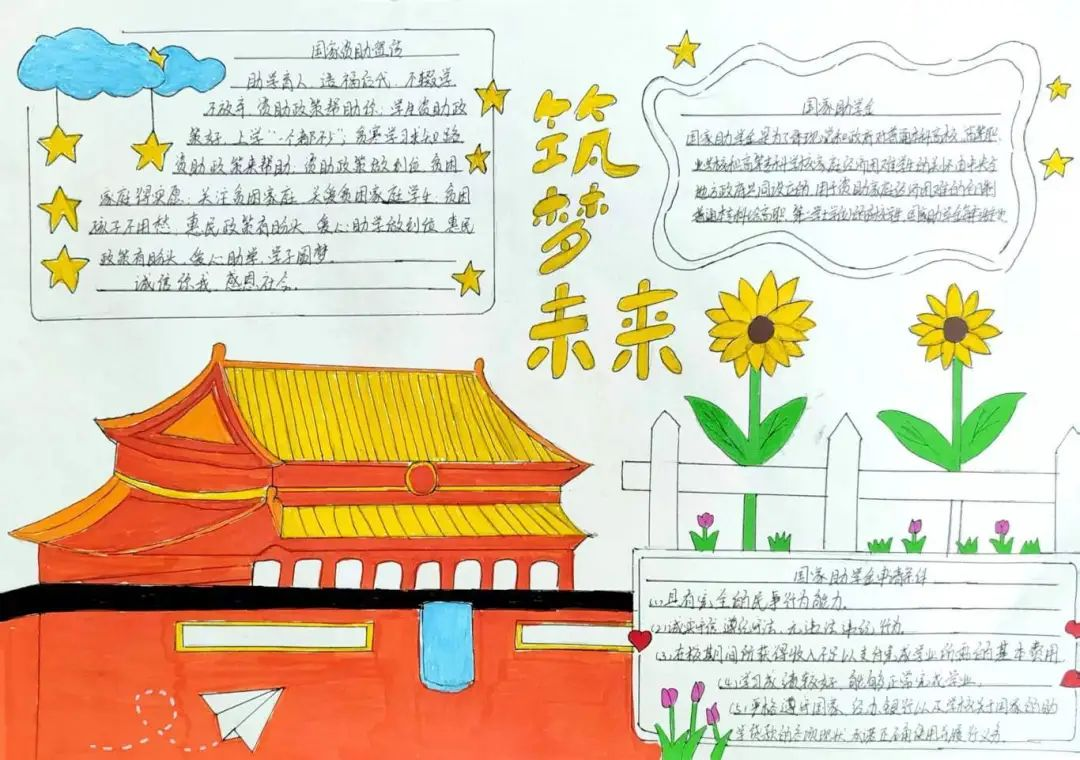 国家资助宣传
助学育人，造福后代，不辍学
不放弃，资助政策帮助你；学生资助政
策好，上学“一个都不少”；贫寒学习求知路
资助政策来帮助，资助政策做到位，贫困
家庭得实惠；关注贫困家庭，关爱贫困家庭学生，贫困
孩子不用愁，惠民政策有盼头，爱心助学做到位，惠民
政策有盼头，爱心助学，学子圆梦。
诚信你我，感恩社会。
筑
梦
未来
国家助学金
国家助学金是为了体现党和政府对普通本科高校、高等职
业学校和高等专科学校家庭经济困难学生的关怀，由中央与
地方政府共同设立的，用于资助家庭经济困难的全日制
普通本专科
国家助学金申请条件
(1)具有完全的民事行为能力。
(2)诚实守信，遵纪守法，无违法违纪行为
(3)在校期间所获得收入不足以支付完成学业所需的基本费用
(4)学习成绩较好，能够正常完成学业。
(5)严格遵守国家、经办银行以及学校关于国家的助
学贷款的 承诺正确使用 履行义务